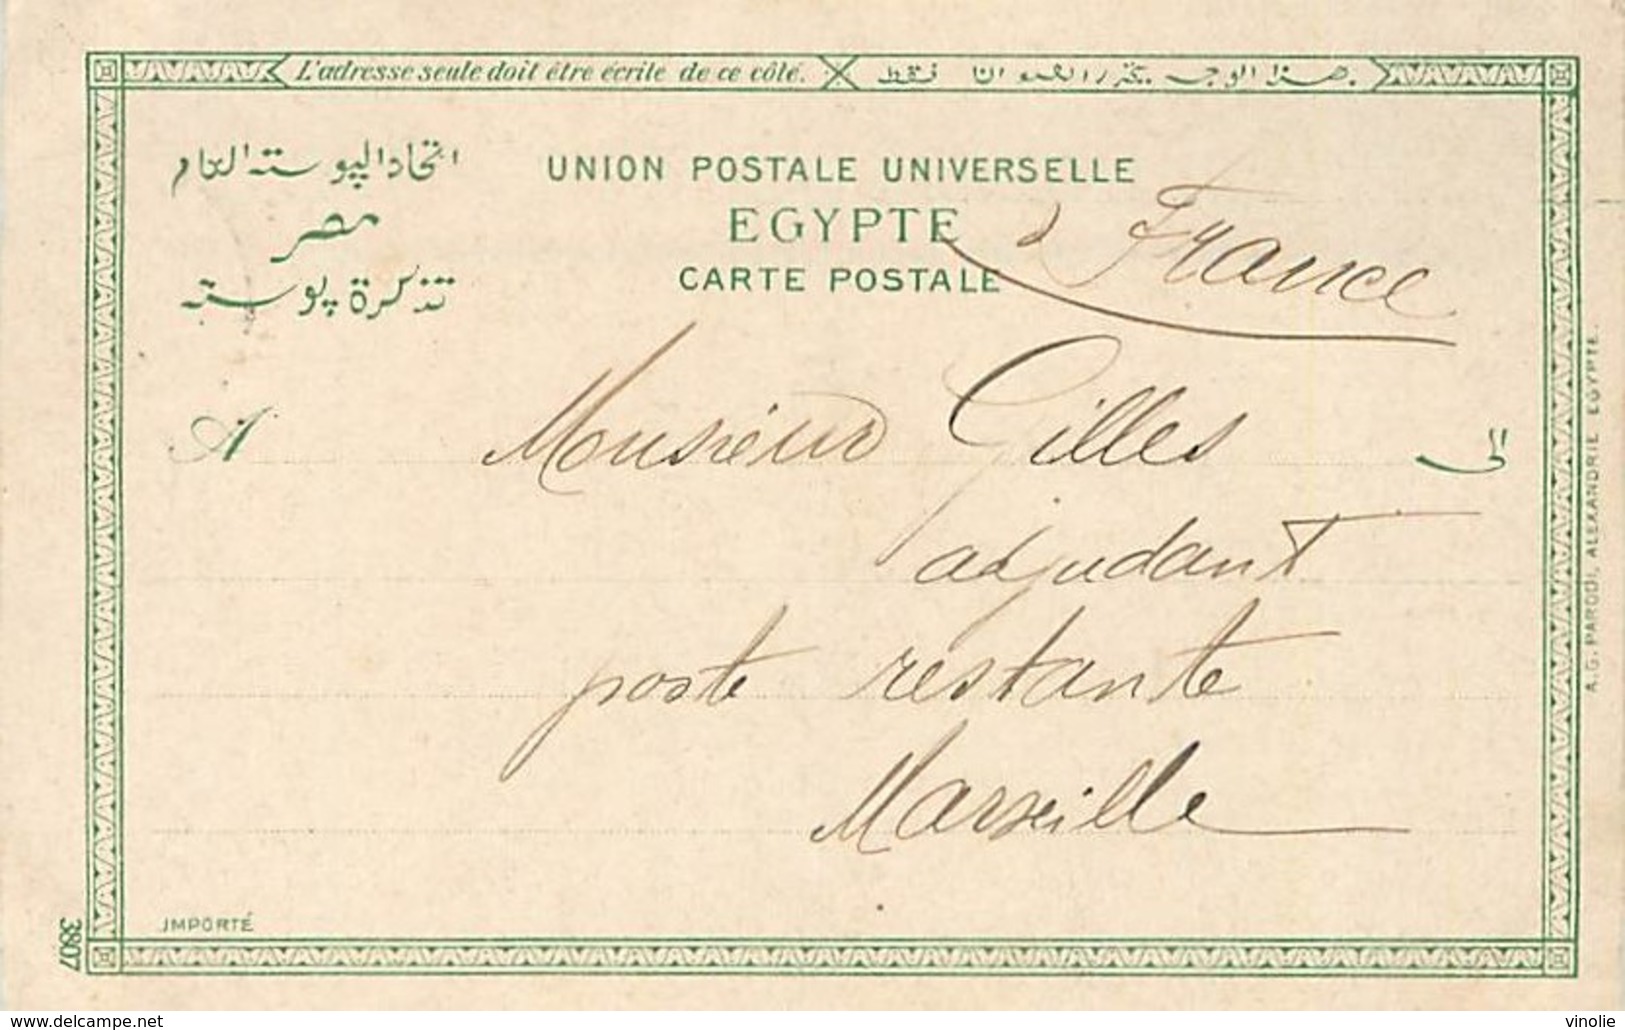 L'adresse seule doit être écrite de ce côté.
هذا الوجه فقط
اتحاد اليوسته العام
UNION POSTALE UNIVERSELLE
مصر
EGYPTE
France
تذكرة پوسته
CARTE POSTALE
A
Monsieur Gilles
الى
adjudant
poste restante
Marseille
IMPORTÉ
3807
A.G. PARODI, ALEXANDRIE EGYPTE.
www.delcampe.net
vinolie